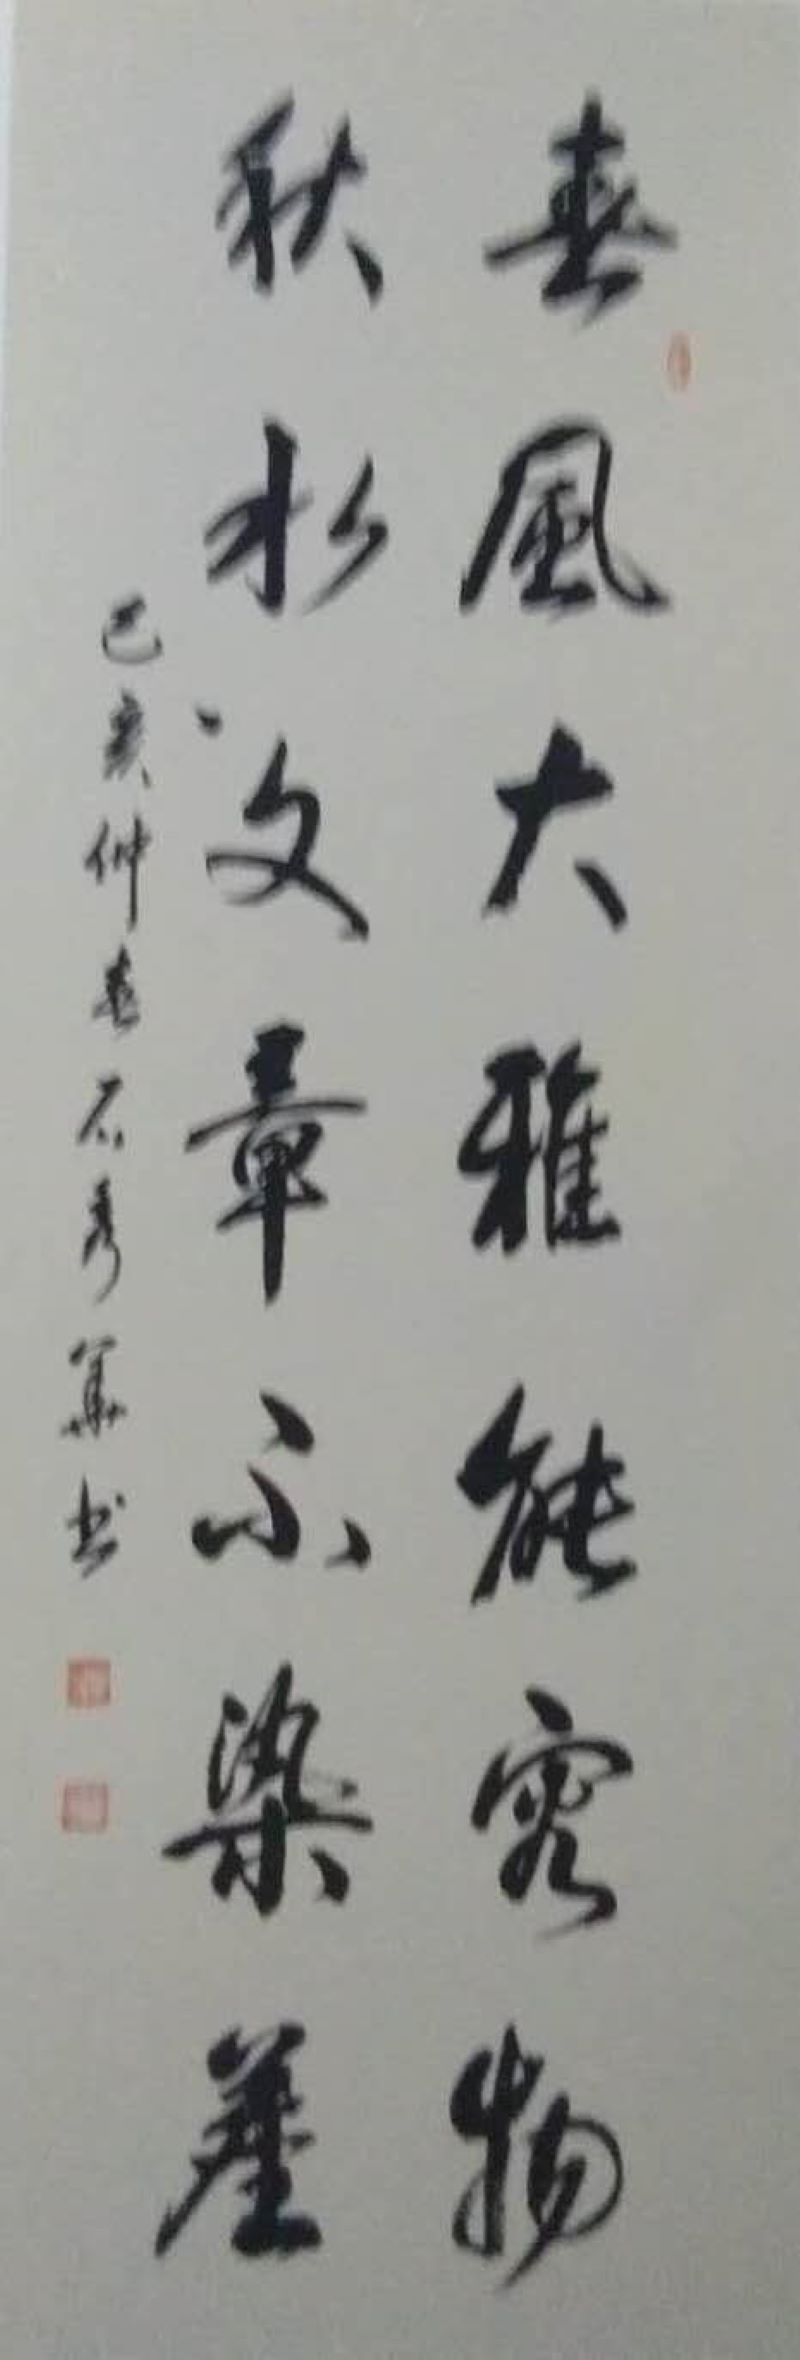 春風大雅能容物
秋水文章不染塵
己亥仲春石秀華书